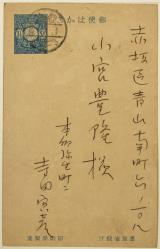 郵便はかき
赤坂区青山南町六ノ一〇八
小宮豊隆様
本郷弥生町二
寺田寅彦